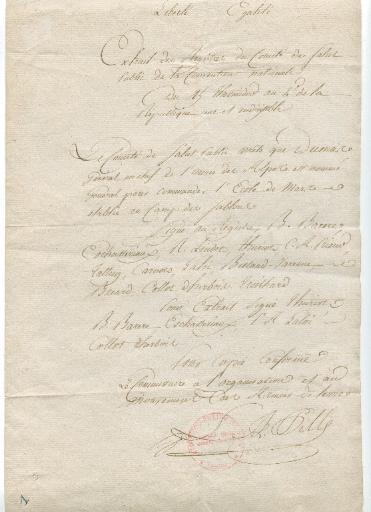 Liberté Egalité
Extrait des Registres du Comité de Salut
Public de la Convention nationale
Du 15 Thermidor an 2e de la
République une et indivisible
Le Comité de Salut Public arrête que Dumas
général en chef de l'armée des Alpes est nommé
général pour commander l'Ecole de Mars
établie au Camp des Sablons
Signé au Registre B. Barere
Eschasseriaux R. Lindet, Thuriot C. A. Prieur
Tallien, Carnot, Laloi Billaud Varenne
Breard Collot d'herbois Treilhard
Pour Extrait Signé Thuriot
B. Barere Eschasseriaux P. A. Laloi
Collot d'herbois
Pour Copie Conforme
Le Commissaire de l'organisation et du
Mouvement des Armées de terre
L. A. Pille